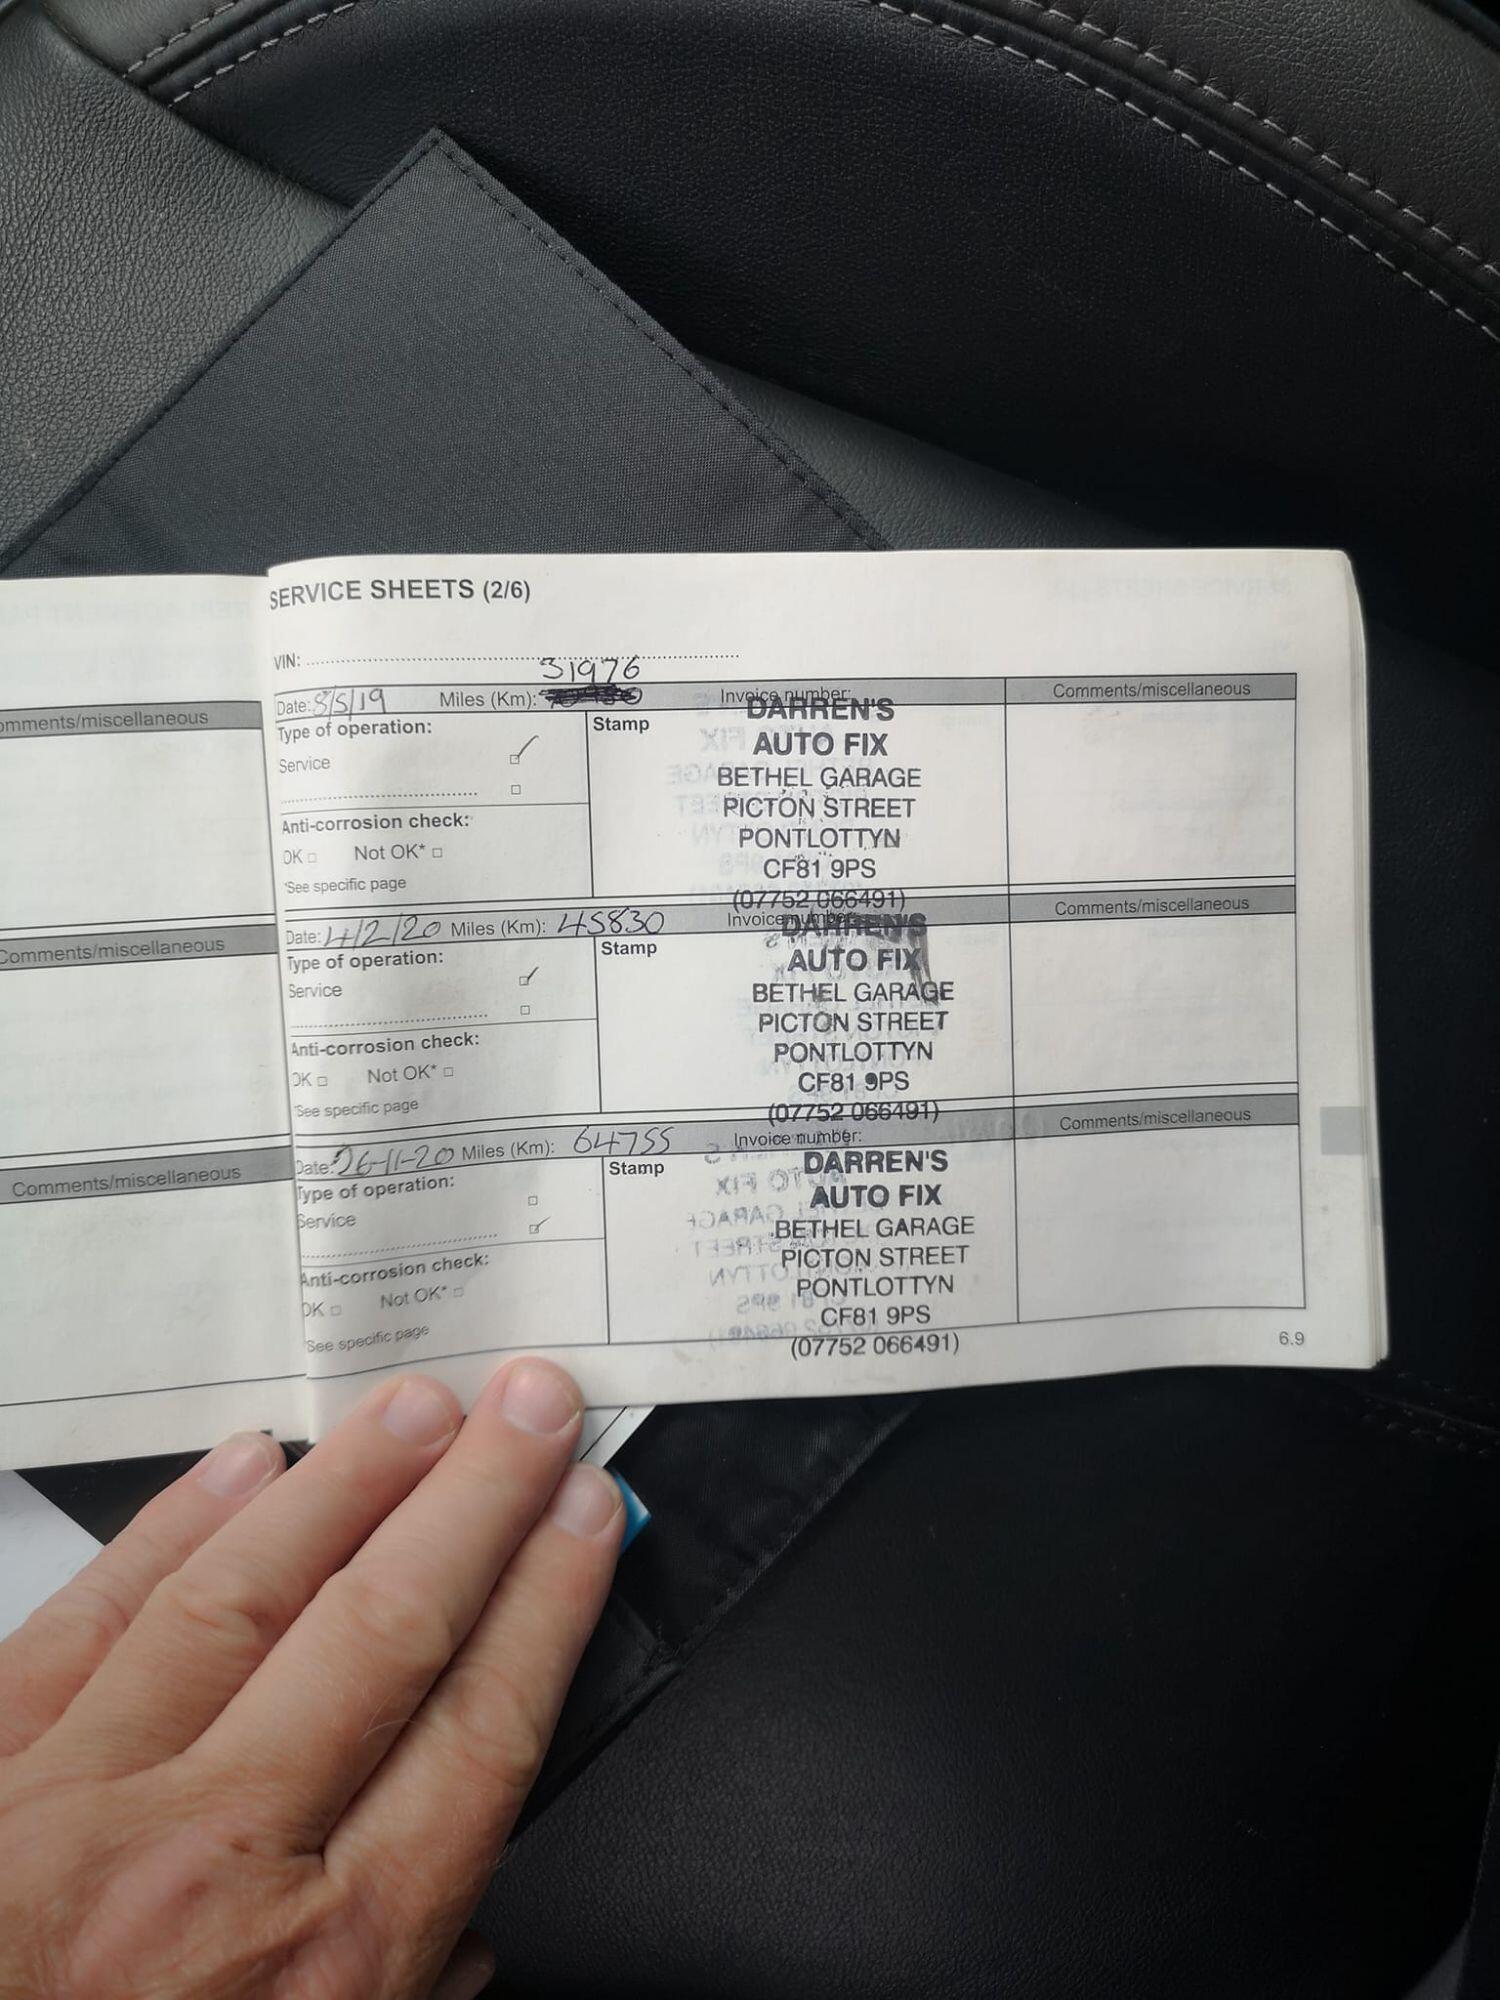 SERVICE SHEETS (2/6)
VIN:
31976
Date: 8/5/19 Miles (Km): Invoice number: Comments/miscellaneous
Type of operation:
Service
Anti-corrosion check:
OK Not OK*
*See specific page
Stamp
DARREN'S
AUTO FIX
BETHEL GARAGE
PICTON STREET
PONTLOTTYN
CF81 9PS
(07752 066491)
Date: 4/2/20 Miles (Km): 45830 Invoice number: Comments/miscellaneous
Type of operation:
Service
Anti-corrosion check:
OK Not OK*
*See specific page
Stamp
DARREN'S
AUTO FIX
BETHEL GARAGE
PICTON STREET
PONTLOTTYN
CF81 9PS
(07752 066491)
Date: 26-11-20 Miles (Km): 64755 Invoice number: Comments/miscellaneous
Type of operation:
Service
Anti-corrosion check:
OK Not OK*
*See specific page
Stamp
DARREN'S
AUTO FIX
BETHEL GARAGE
PICTON STREET
PONTLOTTYN
CF81 9PS
(07752 066491)
6.9
omments/miscellaneous
Comments/miscellaneous
Comments/miscellaneous